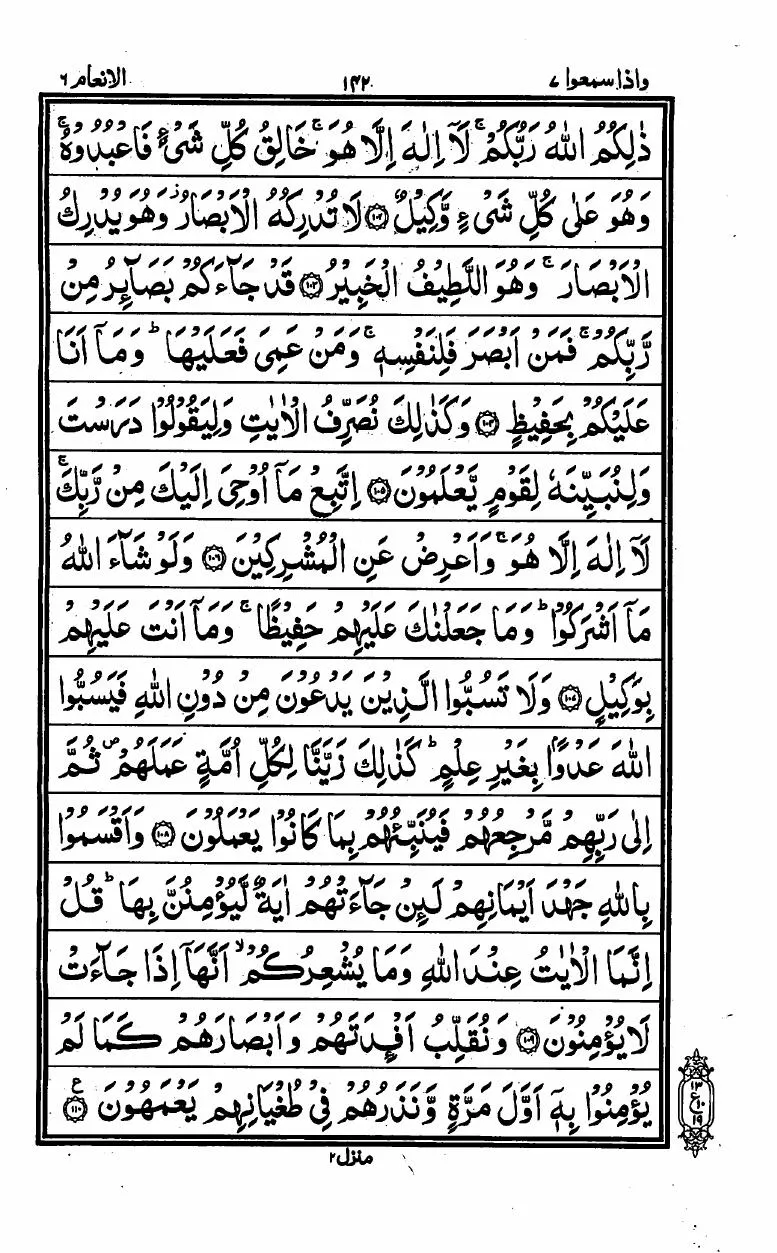 واذا سمعوا ٧ ١٤٢ الانعام ٦
ذٰلِكُمُ اللّٰهُ رَبُّكُمْ ۚ لَاۤ اِلٰهَ اِلَّا هُوَ ۚ خَالِقُ كُلِّ شَیْءٍ فَاعْبُدُوْهُ ۚ
وَهُوَ عَلٰی كُلِّ شَیْءٍ وَّكِیْلٌ ۝١٠٢ لَا تُدْرِكُهُ الْاَبْصَارُ ؗ وَهُوَ یُدْرِكُ
الْاَبْصَارَ ۚ وَهُوَ اللَّطِیْفُ الْخَبِیْرُ ۝١٠٣ قَدْ جَآءَكُمْ بَصَآىِٕرُ مِنْ
رَّبِّكُمْ ۚ فَمَنْ اَبْصَرَ فَلِنَفْسِهٖ ۚ وَمَنْ عَمِیَ فَعَلَیْهَا ؕ وَمَاۤ اَنَا
عَلَیْكُمْ بِحَفِیْظٍ ۝١٠٤ وَكَذٰلِكَ نُصَرِّفُ الْاٰیٰتِ وَلِیَقُوْلُوْا دَرَسْتَ
وَلِنُبَیِّنَهٗ لِقَوْمٍ یَّعْلَمُوْنَ ۝١٠٥ اِتَّبِعْ مَاۤ اُوْحِیَ اِلَیْكَ مِنْ رَّبِّكَ ۚ
لَاۤ اِلٰهَ اِلَّا هُوَ ۚ وَاَعْرِضْ عَنِ الْمُشْرِكِیْنَ ۝١٠٦ وَلَوْ شَآءَ اللّٰهُ
مَاۤ اَشْرَكُوْا ؕ وَمَا جَعَلْنٰكَ عَلَیْهِمْ حَفِیْظًا ۚ وَمَاۤ اَنْتَ عَلَیْهِمْ
بِوَكِیْلٍ ۝١٠٧ وَلَا تَسُبُّوا الَّذِیْنَ یَدْعُوْنَ مِنْ دُوْنِ اللّٰهِ فَیَسُبُّوا
اللّٰهَ عَدْوًۢا بِغَیْرِ عِلْمٍ ؕ كَذٰلِكَ زَیَّنَّا لِكُلِّ اُمَّةٍ عَمَلَهُمْ ۪ ثُمَّ
اِلٰی رَبِّهِمْ مَّرْجِعُهُمْ فَیُنَبِّئُهُمْ بِمَا كَانُوْا یَعْمَلُوْنَ ۝١٠٨ وَاَقْسَمُوْا
بِاللّٰهِ جَهْدَ اَیْمَانِهِمْ لَىِٕنْ جَآءَتْهُمْ اٰیَةٌ لَّیُؤْمِنُنَّ بِهَا ؕ قُلْ
اِنَّمَا الْاٰیٰتُ عِنْدَ اللّٰهِ وَمَا یُشْعِرُكُمْ ۙ اَنَّهَاۤ اِذَا جَآءَتْ
لَا یُؤْمِنُوْنَ ۝١٠٩ وَنُقَلِّبُ اَفْـِٕدَتَهُمْ وَاَبْصَارَهُمْ كَمَا لَمْ
یُؤْمِنُوْا بِهٖۤ اَوَّلَ مَرَّةٍ وَّنَذَرُهُمْ فِیْ طُغْیَانِهِمْ یَعْمَهُوْنَ ۝١١٠ ع
١٣
ع ١٠
١٩
منزل ٢